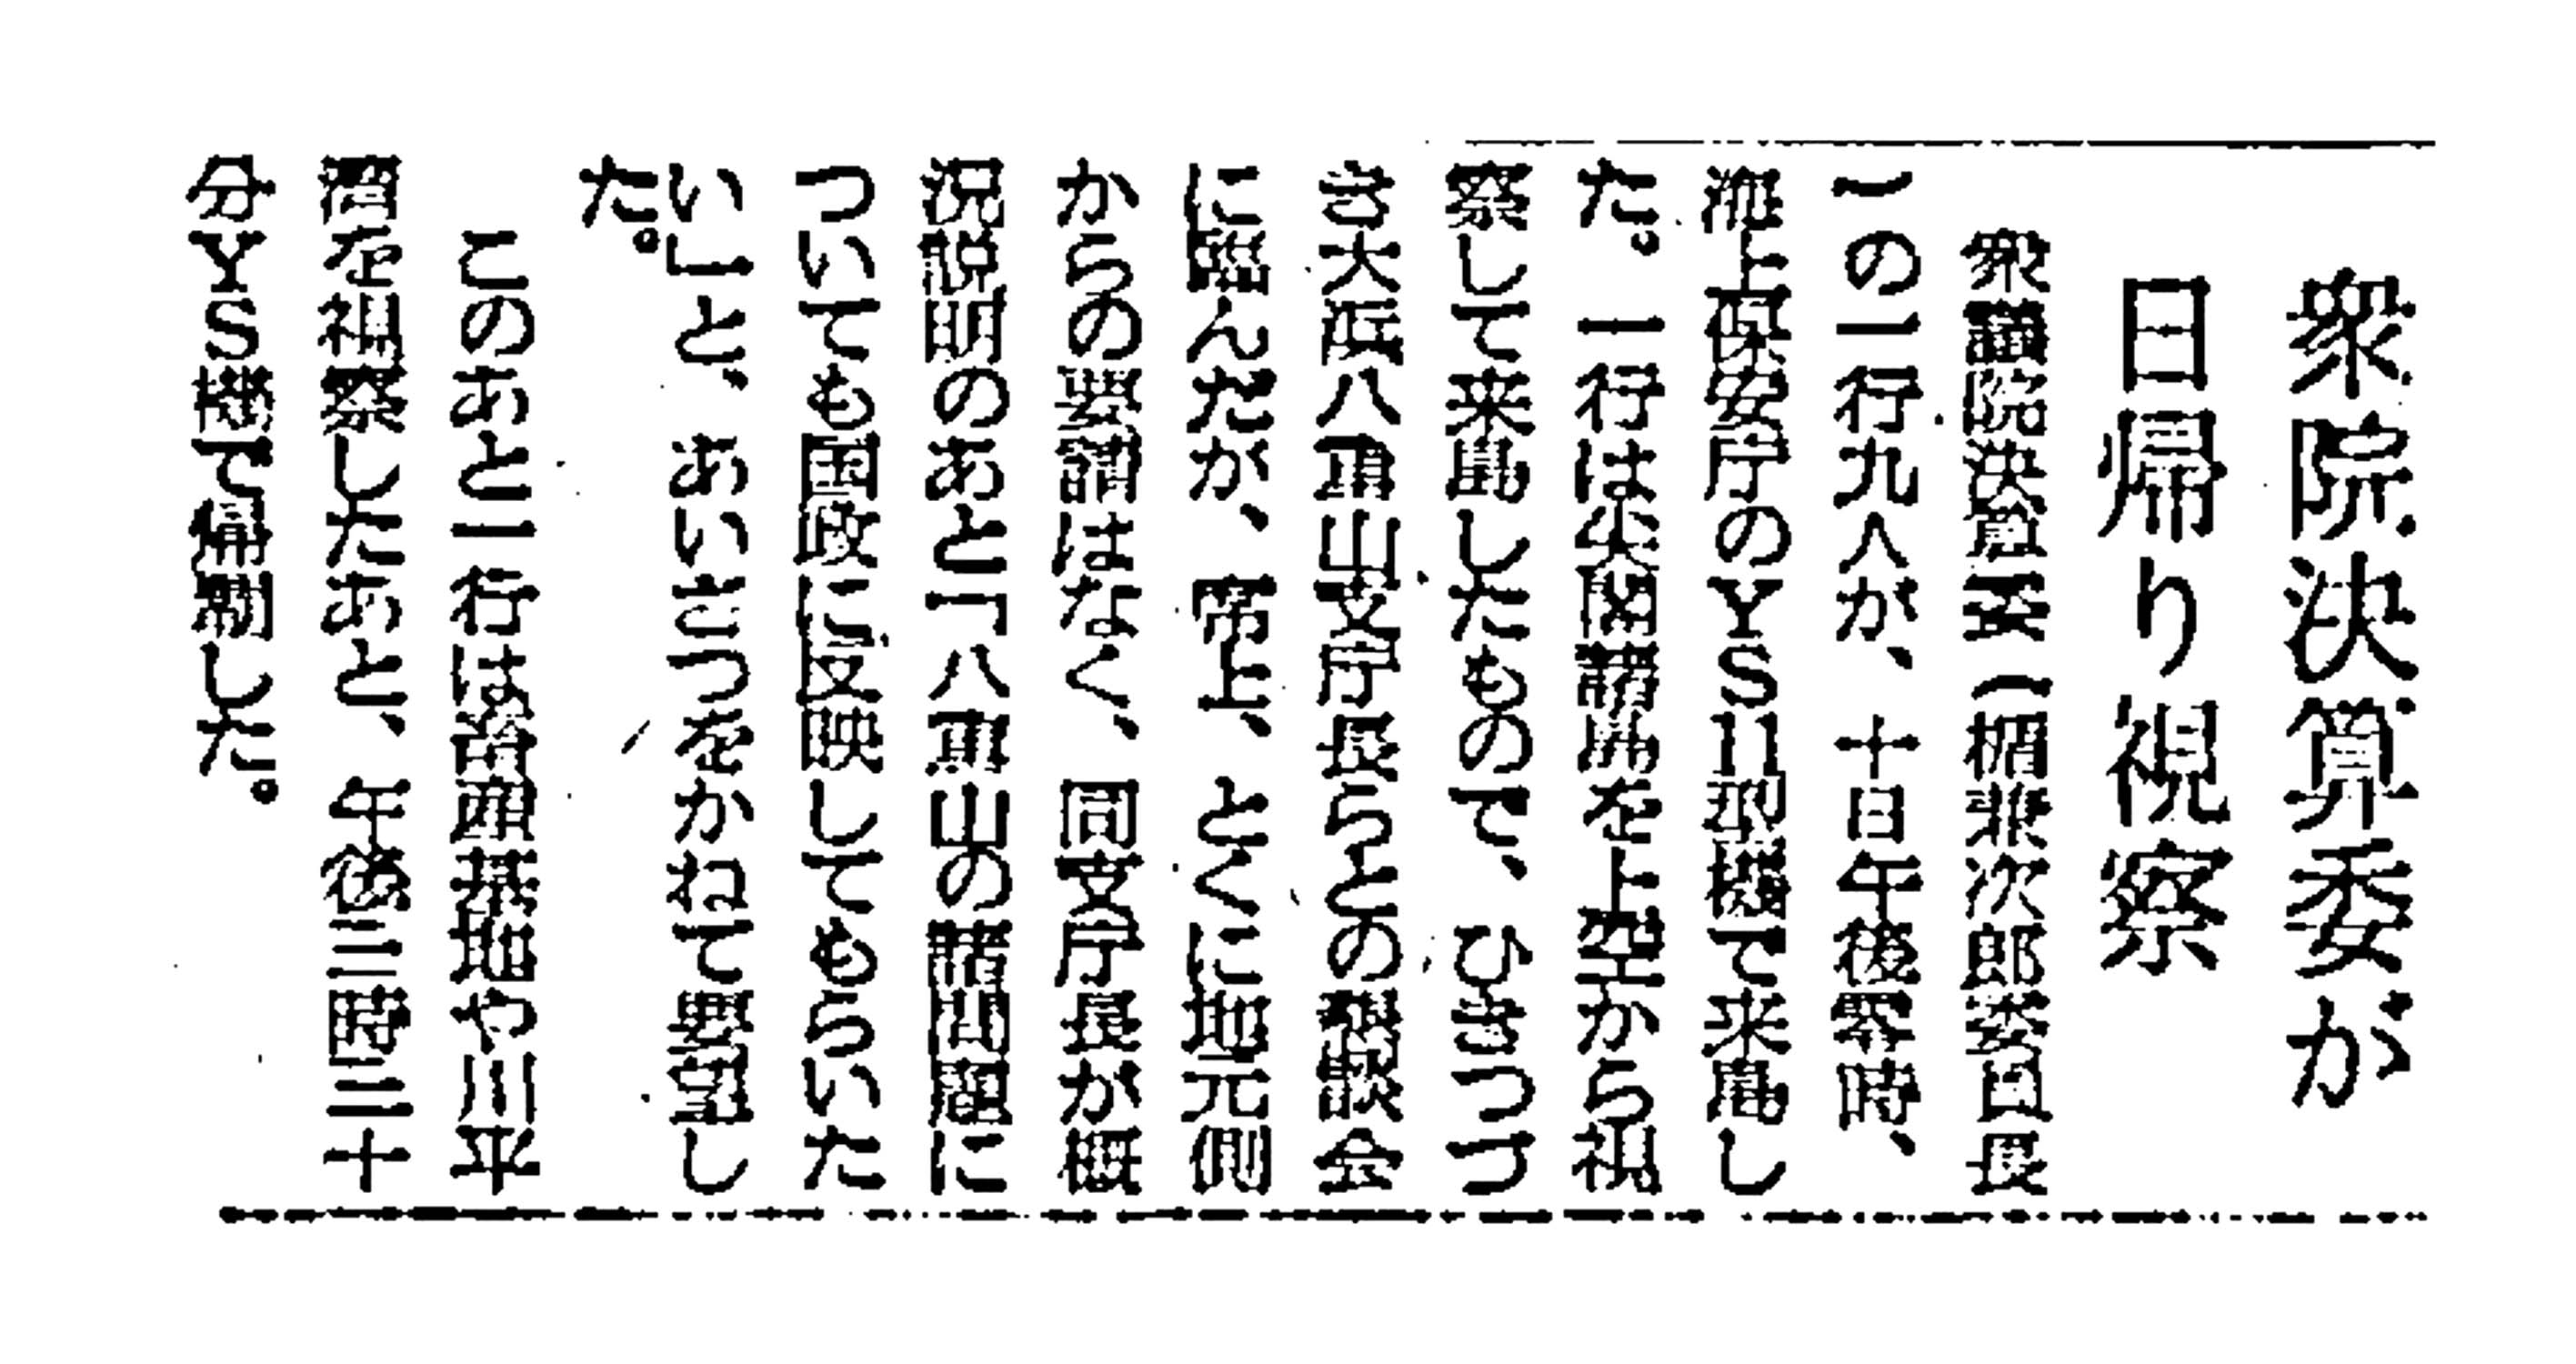 衆院決算委が
日帰り視察
衆議院決算委（楯兼次郎委員長
）の一行九人が、十日午後零時、
海上保安庁のＹＳ11型機で来島し
た。一行は尖閣諸島を上空から視
察して来島したもので、ひきつづ
き大浜八重山支庁長らとの懇談会
に臨んだが、席上、とくに地元側
からの要請はなく、同支庁長が概
況説明のあと「八重山の諸問題に
ついても国政に反映してもらいた
い」と、あいさつをかねて要望し
た。
このあと一行は畜産基地や川平
湾を視察したあと、午後三時三十
分ＹＳ機で帰覇した。